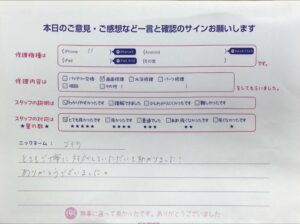 本日のご意見・ご感想など一言と確認のサインお願いします
修理機種は
iPhone 11
Android
iPad
その他
です。
修理内容は
バッテリー交換 画面修理 水没修理 パーツ修理
相談 その他
をしてもらいました。
スタッフの説明は
わかりやすかったです 理解できました 少しわかりにくかったです 難しかったです
スタッフの対応は
★星の数★
とても良かったです 良かったです 普通でした あまり良くなかったです 良くなかったです
★★★★★ ★★★★ ★★★ ★★ ★
ニックネーム:
とても丁寧に対応していただいて助かりました!
ありがとうございました。
無事に直って良かったです。ありがとうございました